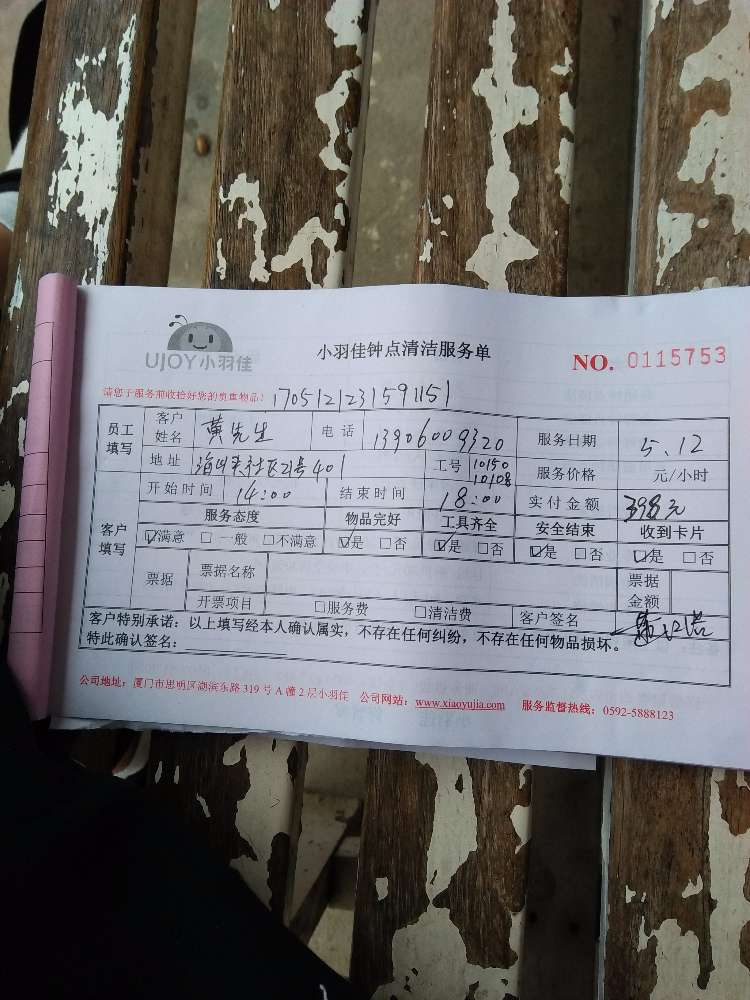 UJOY小羽佳
小羽佳钟点清洁服务单
NO. 0115753
请您于服务前收拾好您的贵重物品: 1705121231591151
员工填写 客户姓名 黄先生 电话 13906009320 服务日期 5.12
地址 社区21号401 工号 10150 10108 服务价格 元/小时
开始时间 14:00 结束时间 18:00 实付金额 398元
客户填写 服务态度 物品完好 工具齐全 安全结束 收到卡片
☑满意 □一般 □不满意 ☑是 □否 ☑是 □否 ☑是 □否 ☑是 □否
票据 票据名称 票据金额
开票项目 □服务费 □清洁费 客户签名
客户特别承诺：以上填写经本人确认属实，不存在任何纠纷，不存在任何物品损坏。
特此确认签名：
公司地址：厦门市思明区湖滨东路 319 号 A 幢 2 层小羽佳 公司网站：www.xiaoyujia.com 服务监督热线：0592-5888123